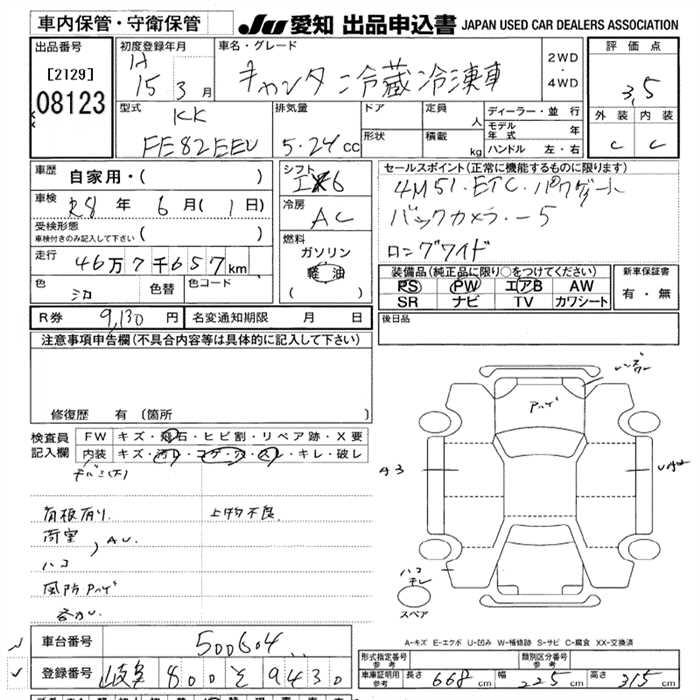 車内保管・守衛保管
JU 愛知 出品申込書 JAPAN USED CAR DEALERS ASSOCIATION
出品番号
[2129]
08123
初度登録年月
H 15 3 月
車名・グレード
キャンター 冷蔵冷凍車
2WD
4WD
評価点
3,5
外装 内装
C C
型式
KK
FE82EEV
排気量
5.24 cc
ドア
形状
定員 人
積載 kg
ディーラー・並行
モデル年式 年
ハンドル 左・右
車歴 自家用・( )
車検 R8 年 6 月 ( 1 日)
受検形態
車検付きのみ記入して下さい ( )
走行 46万7千657 km
色 シロ 色替 色コード
シフト
6
冷房
AC
燃料
ガソリン
軽油
( )
セールスポイント (正常に機能するものに限ります)
4M51.ETC.パワゲート
バックカメラ.-5
ロングワイド
装備品 (純正品に限り○をつけてください)
PS PW エアB AW
SR ナビ TV カワシート
新車保証書
有・無
R券 9,130 円 名変通知期限 月 日
後日品
注意事項申告欄 (不具合内容等は具体的に記入して下さい)
修復歴 有 (箇所 )
検査員
記入欄
FW キズ・飛石・ヒビ割・リペア跡・X要
内装 キズ・汚レ・コゲ・穴・スレ・キレ・破レ
有板有り
荷室
ハコ
A3
ハコ
スペア
A-キズ E-エクボ U-凹み W-補修跡 S-サビ C-腐食 XX-交換済
車台番号 500604
登録番号 岐阜 800 そ 9430
形式指定番号
参考
類別区分番号
参考
車庫証明用
参考
長さ 668 cm 幅 225 cm 高さ 315 cm